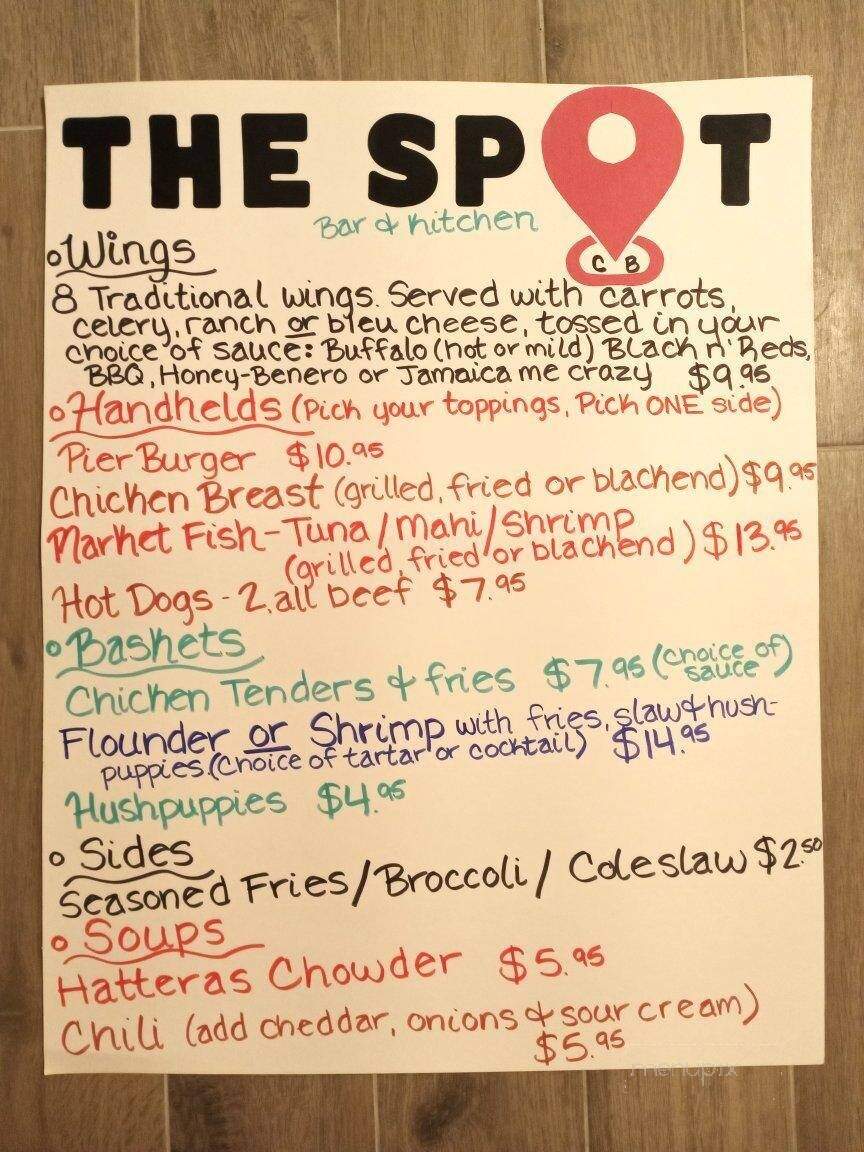 THE SPOT
Bar & Kitchen
C B
Wings
8 Traditional wings. Served with carrots,
celery, ranch or bleu cheese, tossed in your
choice of sauce: Buffalo (hot or mild) Black n' Reds,
BBQ, Honey-Benero or Jamaica me crazy $9.95
Handhelds (Pick your toppings, Pick ONE side)
Pier Burger $10.95
Chicken Breast (grilled, fried or blackend) $9.95
Market Fish - Tuna/Mahi/Shrimp
(grilled, fried or blackend) $13.95
Hot Dogs - 2, all beef $7.95
Baskets
Chicken Tenders & fries $7.95 (choice of sauce)
Flounder or Shrimp with fries, slaw & hush-
puppies (Choice of tartar or cocktail) $14.95
Hushpuppies $4.95
Sides
Seasoned Fries/Broccoli/Coleslaw $2.50
Soups
Hatteras Chowder $5.95
Chili (add cheddar, onions & sour cream)
$5.95
menupix